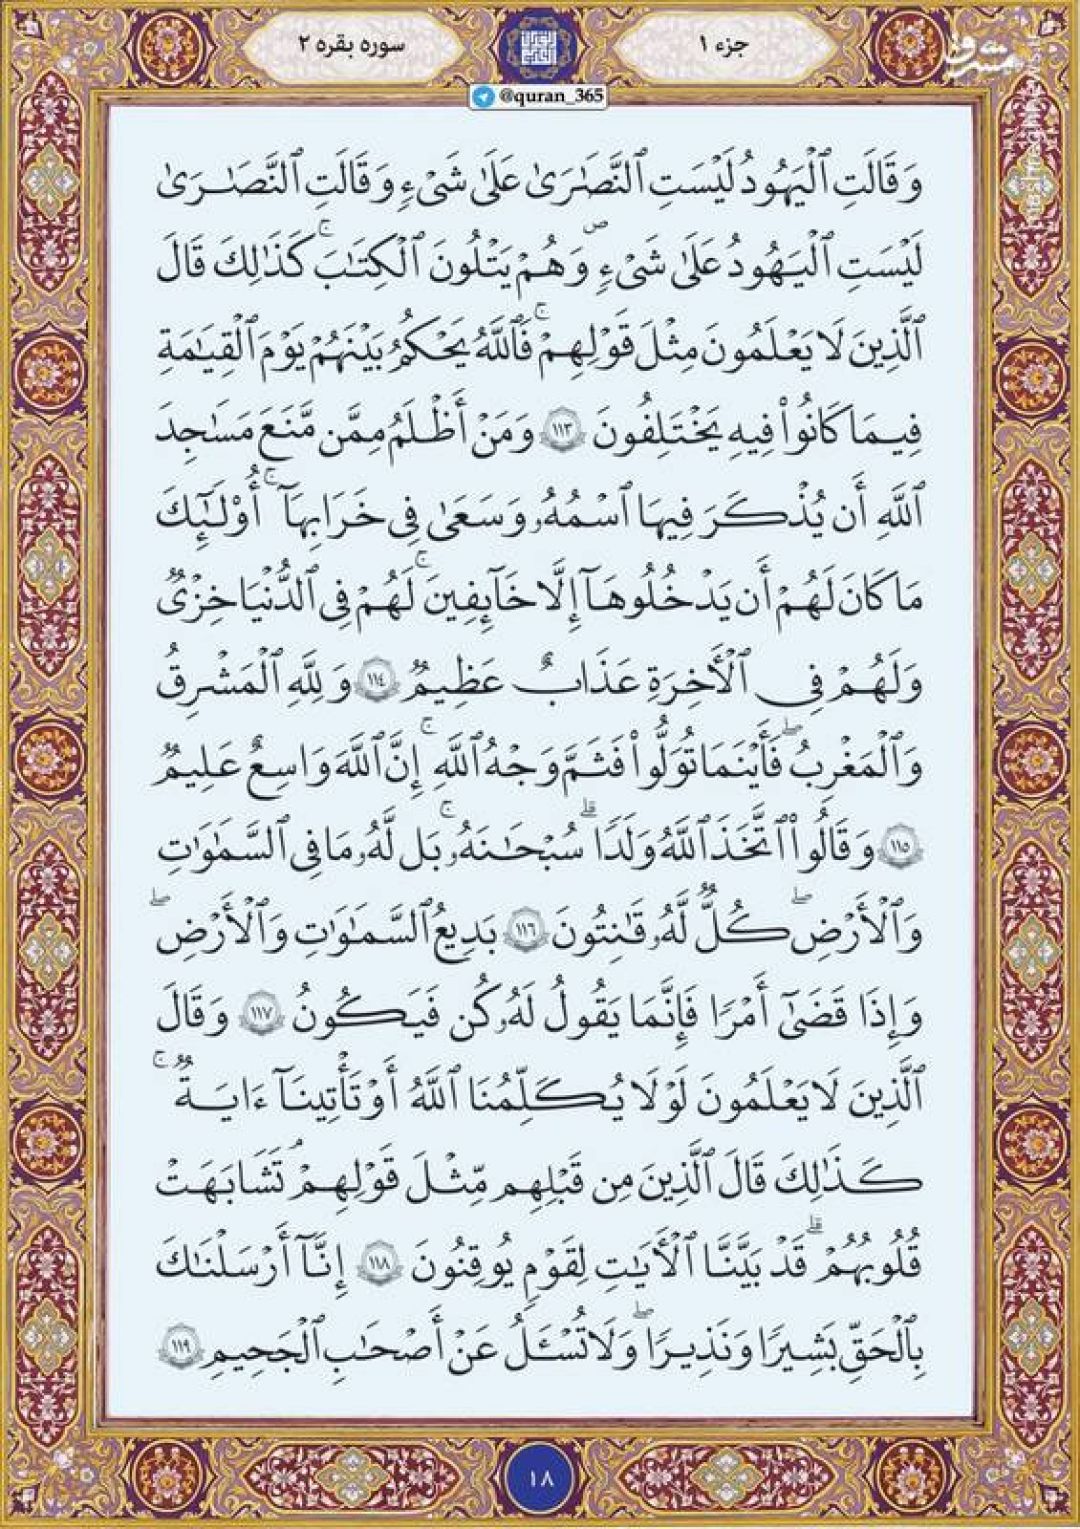 جزء ۱
سوره بقره ۲
مشرق
mashreghnews
@quran_365
وَقَالَتِ ٱلْيَهُودُ لَيْسَتِ ٱلنَّصَـٰرَىٰ عَلَىٰ شَىْءٍ وَقَالَتِ ٱلنَّصَـٰرَىٰ
لَيْسَتِ ٱلْيَهُودُ عَلَىٰ شَىْءٍ ۖ وَهُمْ يَتْلُونَ ٱلْكِتَـٰبَ ۚ كَذَٰلِكَ قَالَ
ٱلَّذِينَ لَا يَعْلَمُونَ مِثْلَ قَوْلِهِمْ ۚ فَٱللَّهُ يَحْكُمُ بَيْنَهُمْ يَوْمَ ٱلْقِيَـٰمَةِ
فِيمَا كَانُوا۟ فِيهِ يَخْتَلِفُونَ ١١٣ وَمَنْ أَظْلَمُ مِمَّن مَّنَعَ مَسَـٰجِدَ
ٱللَّهِ أَن يُذْكَرَ فِيهَا ٱسْمُهُۥ وَسَعَىٰ فِى خَرَابِهَآ ۚ أُو۟لَـٰٓئِكَ
مَا كَانَ لَهُمْ أَن يَدْخُلُوهَآ إِلَّا خَآئِفِينَ ۚ لَهُمْ فِى ٱلدُّنْيَا خِزْىٌ
وَلَهُمْ فِى ٱلْـَٔاخِرَةِ عَذَابٌ عَظِيمٌ ١١٤ وَلِلَّهِ ٱلْمَشْرِقُ
وَٱلْمَغْرِبُ ۖ فَأَيْنَمَا تُوَلُّوا۟ فَثَمَّ وَجْهُ ٱللَّهِ ۚ إِنَّ ٱللَّهَ وَاسِعٌ عَلِيمٌ
١١٥ وَقَالُوا۟ ٱتَّخَذَ ٱللَّهُ وَلَدًا ۗ سُبْحَـٰنَهُۥ ۚ بَل لَّهُۥ مَا فِى ٱلسَّمَـٰوَٰتِ
وَٱلْأَرْضِ ۖ كُلٌّ لَّهُۥ قَـٰنِتُونَ ١١٦ بَدِيعُ ٱلسَّمَـٰوَٰتِ وَٱلْأَرْضِ ۖ
وَإِذَا قَضَىٰٓ أَمْرًا فَإِنَّمَا يَقُولُ لَهُۥ كُن فَيَكُونُ ١١٧ وَقَالَ
ٱلَّذِينَ لَا يَعْلَمُونَ لَوْلَا يُكَلِّمُنَا ٱللَّهُ أَوْ تَأْتِينَآ ءَايَةٌ ۗ
كَذَٰلِكَ قَالَ ٱلَّذِينَ مِن قَبْلِهِم مِّثْلَ قَوْلِهِمْ ۘ تَشَـٰبَهَتْ
قُلُوبُهُمْ ۗ قَدْ بَيَّنَّا ٱلْـَٔايَـٰتِ لِقَوْمٍ يُوقِنُونَ ١١٨ إِنَّآ أَرْسَلْنَـٰكَ
بِٱلْحَقِّ بَشِيرًا وَنَذِيرًا ۖ وَلَا تُسْـَٔلُ عَنْ أَصْحَـٰبِ ٱلْجَحِيمِ ١١٩
١٨